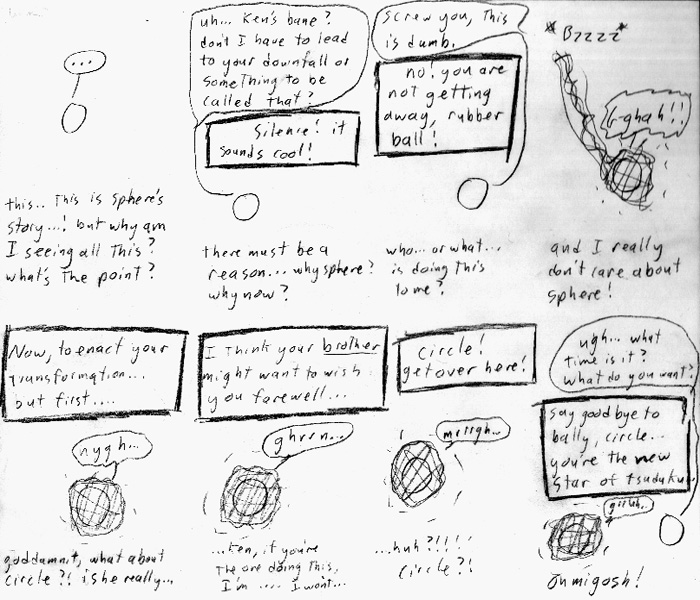 ...
uh... Ken's bane?
don't I have to lead
to your downfall or
something to be
called that?
Silence! it
sounds cool!
Screw you, This
is dumb.
no! you are
not getting
away, rubber
ball!
*Bzzzz*
G-ghah!!
this.. This is sphere's
story...! but why am
I seeing all This?
what's The point?
there must be a
reason... why sphere?
why now?
who... or what...
is doing This
to me?
and I really
don't care about
sphere!
Now, to enact your
transformation....
but first....
nygh...
goddamnit, what about
circle?! is he really...
I Think your brother
might want to wish
you farewell...
ghrrn...
...Ken, if you're
The one doing This,
I'm .... I won't...
circle!
get over here!
mrrrgh...
...huh?!!!!
circle?!
ugh... what
time is it?
what do you want?
say goodbye to
bally, circle...
you're the new
star of tsuduku.
ohmigosh!